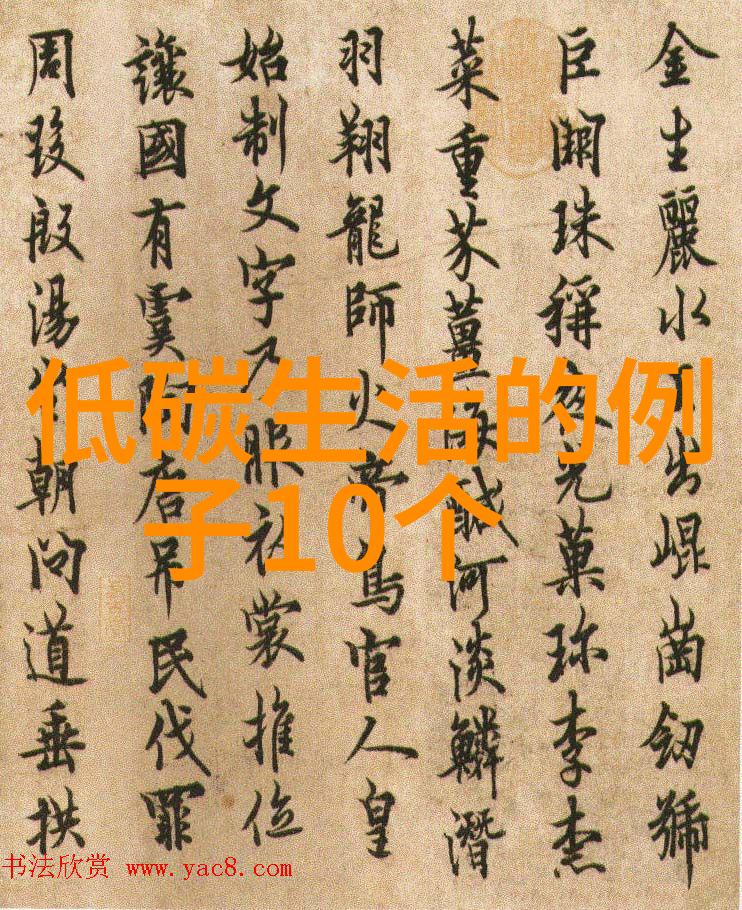 金生麗水出崐崗劒號
巨闕珠稱夜光菓珍李柰
菜重芥薑海鹹河淡鱗潛
羽翔龍師火帝鳥官人皇
始制文字乃服衣裳推位
讓國有虞陶唐吊民伐罪
周發殷湯坐朝問道垂拱
低碳生活的例
子10个
书法欣赏 www.yac8.com